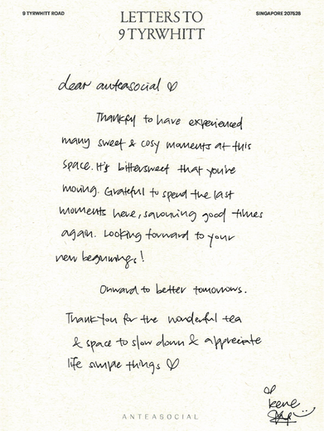 9 TYRWHITT ROAD
LETTERS TO
9 TYRWHITT
SINGAPORE 207528
dear anteasocial ♡
Thankful to have experienced
many sweet & cosy moments at this
space. It's bittersweet that you're
moving. Grateful to spend the last
moments here, savouring good times
again. Looking forward to your
new beginnings!
Onward to better tomorrows.
Thank you for the wonderful tea
& space to slow down & appreciate
life simple things ♡
ANTEASOCIAL